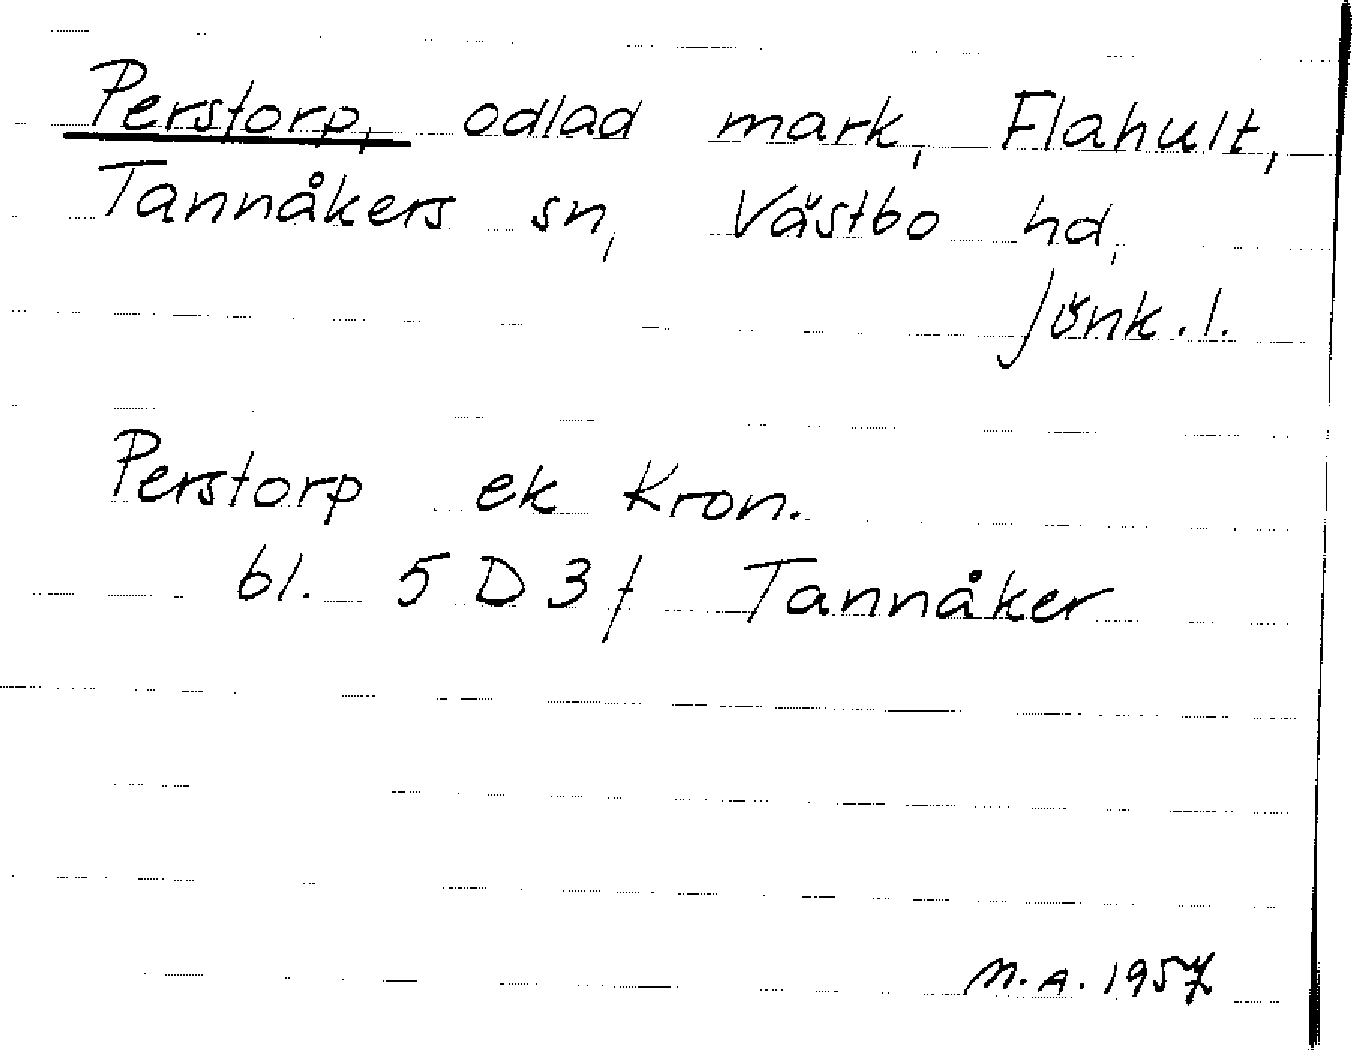 Perstorp, odlad mark, Flahult,
Tannåkers sn, Västbo hd,
Jönk. l.
Perstorp ek Kron.
bl. 5 D 3 f Tannåker
M.A. 1957